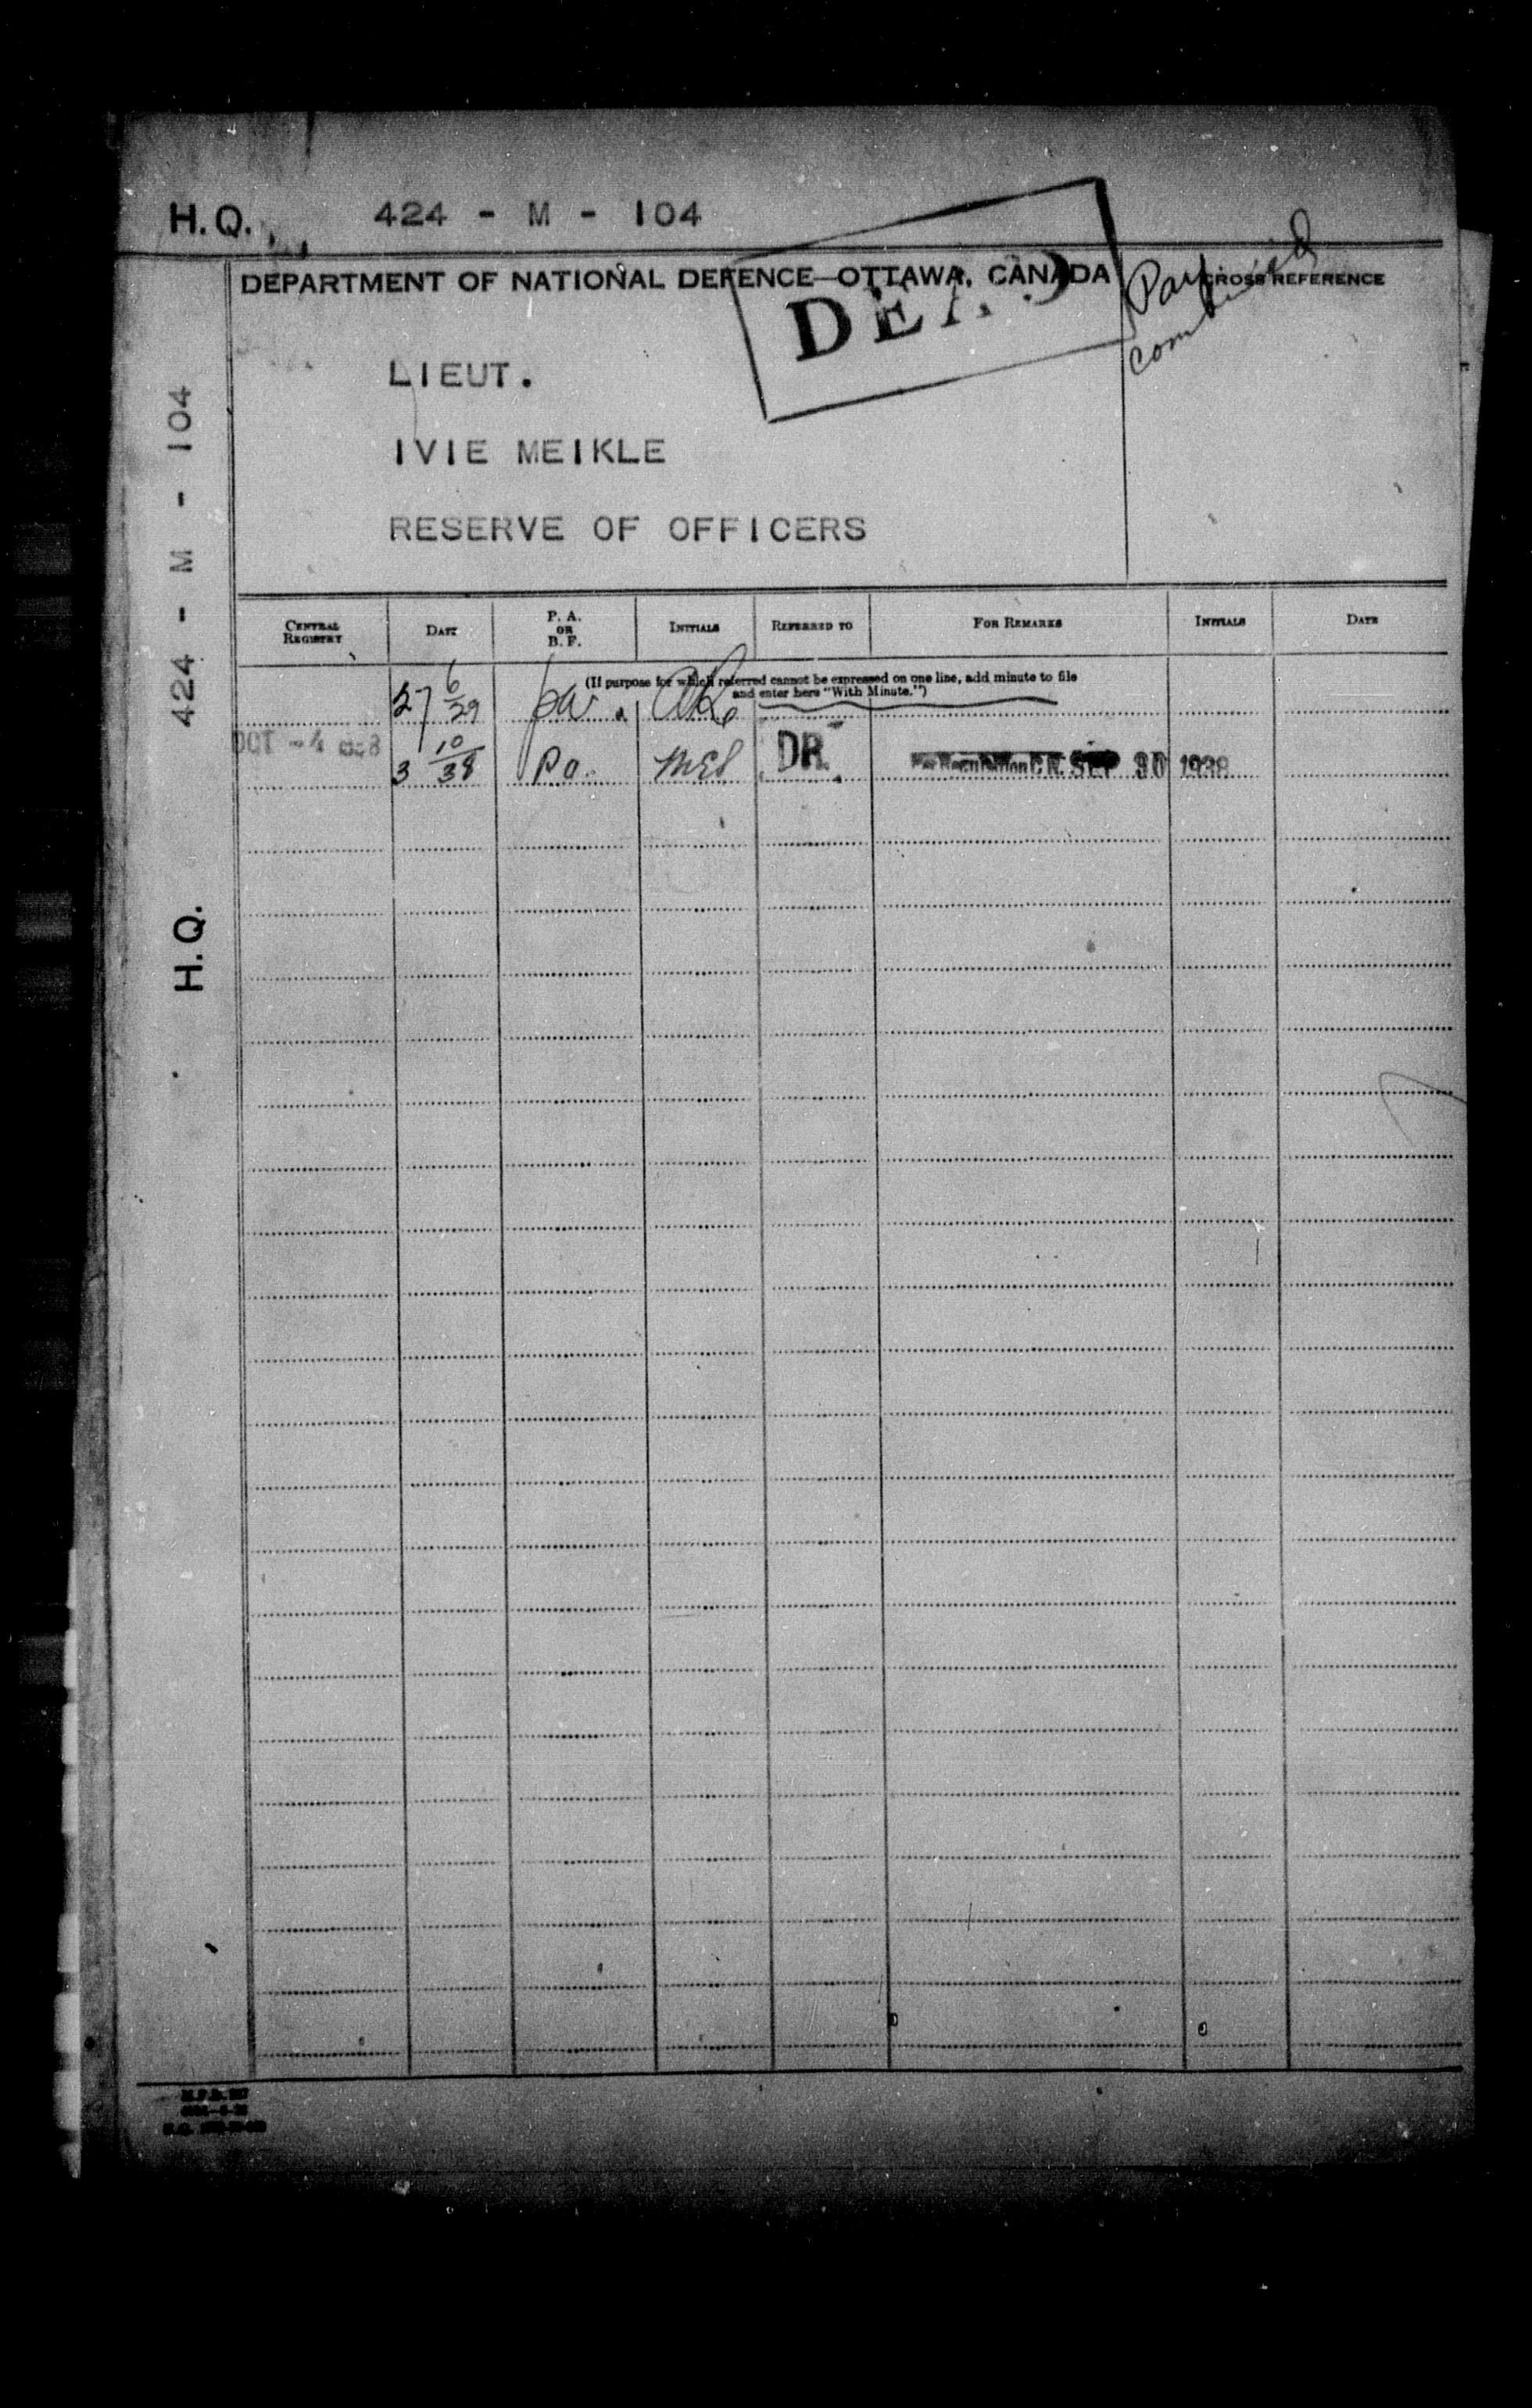 H.Q. 424 - M - 104
DEPARTMENT OF NATIONAL DEFENCE—OTTAWA, CANADA
CROSS REFERENCE
DEAD
LIEUT.
IVIE MEIKLE
RESERVE OF OFFICERS
424 - M - 104
H.Q.
CENTRAL REGISTRY DATE P. A. OR B. F. INITIALS REFERRED TO FOR REMARKS INITIALS DATE
(If purpose for which referred cannot be expressed on one line, add minute to file
and enter here "With Minute.")
27 6/29 pa.
OCT - 4 3 10/38 Pa. DR. SEP 30 1938